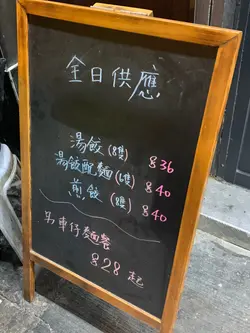 全日供應
湯餃(8隻) $36
湯餃配麵(6隻) $40
煎餃(8隻) $40
車仔麵餐
$28起